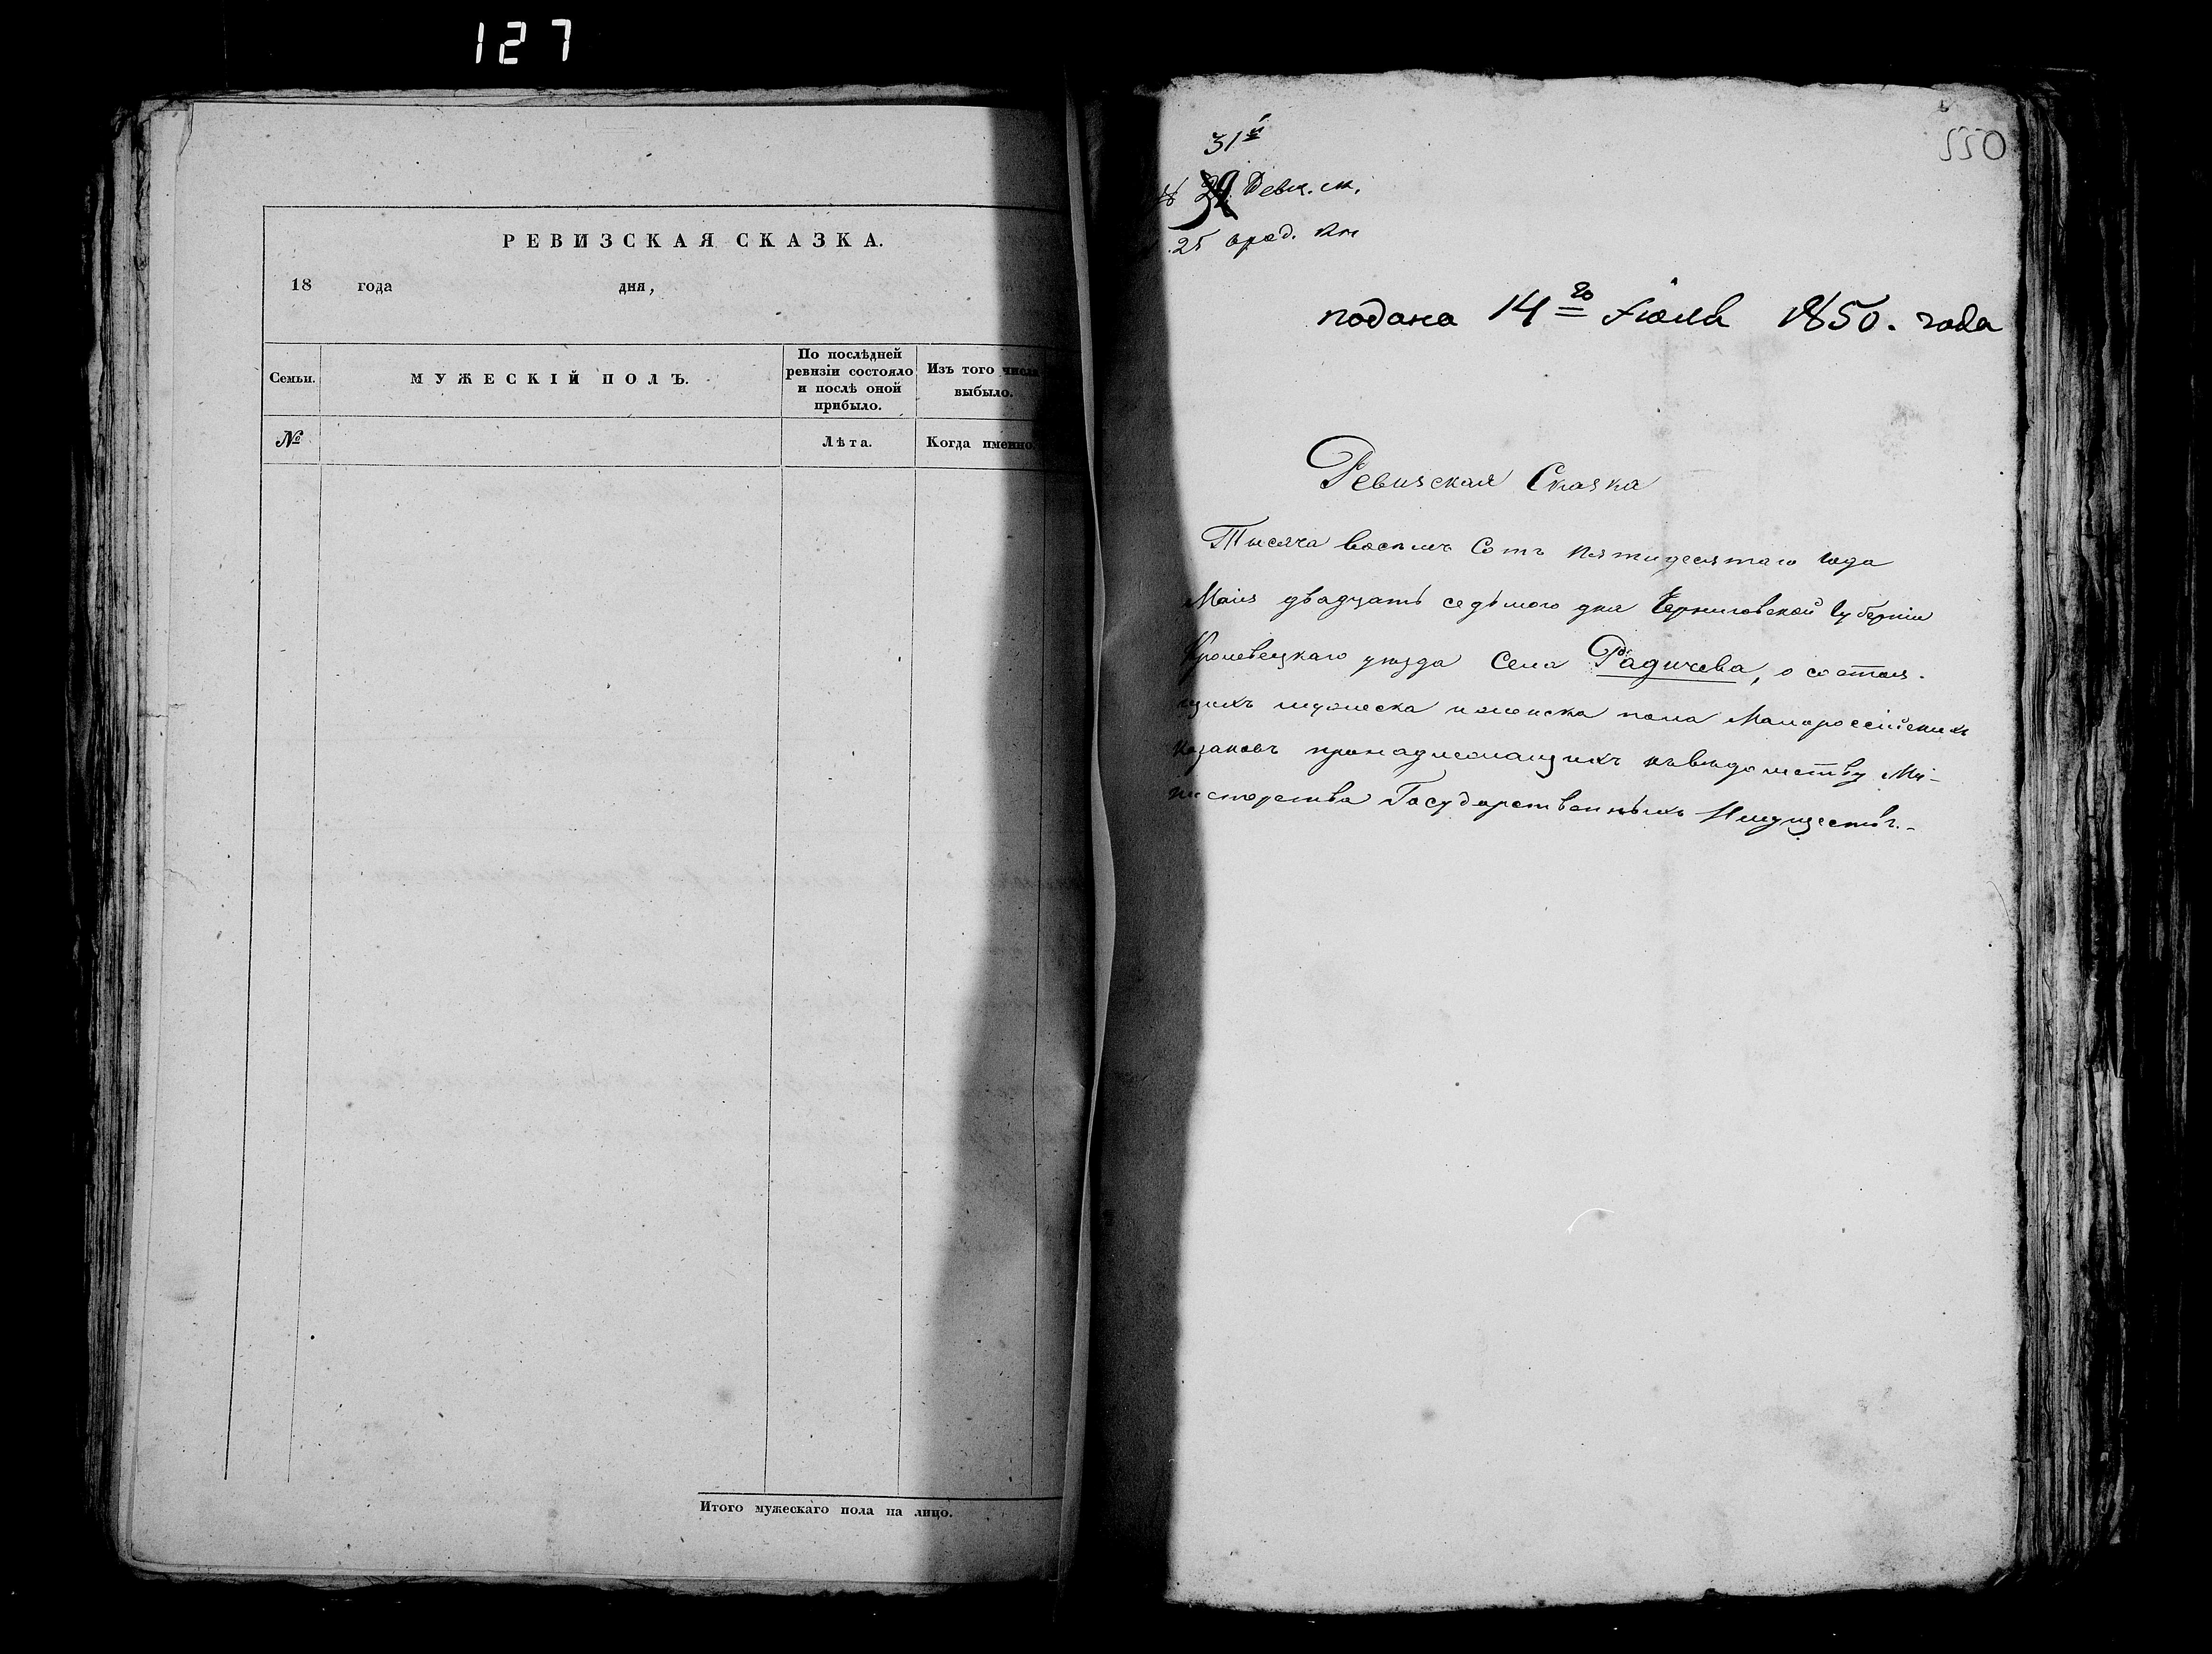 127
РЕВИЗСКАЯ СКАЗКА.
18 года дня,
Семьи.
МУЖЕСКІЙ ПОЛЪ.
По послѣдней ревизіи состояло и послѣ оной прибыло.
Изъ того числа выбыло.
№
Лѣта.
Когда именно.
Итого мужескаго пола на лицо.
31й
Реви. ск.
25 кн
550
подана 14го Іюля 1850. года
Ревизская Сказка
Тысяча восемь Сотъ пятидесятаго года
Маія двадцать седьмого дня Черниговской губерніи
Кролевецкаго уезда Села Радичева, о состоя-
щихъ мужеска и женска пола Малороссійскихъ
козаковъ принадлежащихъ къ вѣдомству Ми-
нистерства Государственныхъ Имуществъ.-